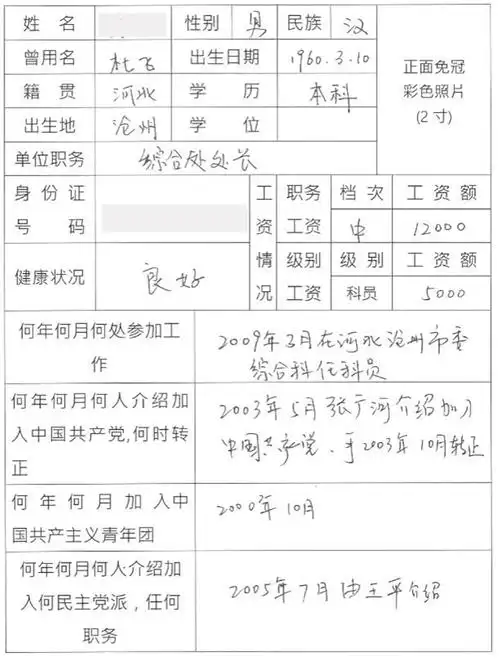 姓名 性别 男 民族 汉
曾用名 杜飞 出生日期 1960.3.10
籍贯 河北 学历 本科
出生地 沧州 学位
正面免冠
彩色照片
(2寸)
单位职务 综合处处长
身份证
号码
工资情况
职务
工资
档次 工资额
中 12000
健康状况 良好
级别
工资
级别 工资额
科员 5000
何年何月何处参加工
作
2009年3月在河北沧州市委
综合科任科员
何年何月何人介绍加
入中国共产党,何时转
正
2003年5月张广河介绍加入
中国共产党、于2003年10月转正
何年何月加入中
国共产主义青年团
2000年10月
何年何月何人介绍加
入何民主党派，任何
职务
2005年7月由王平介绍